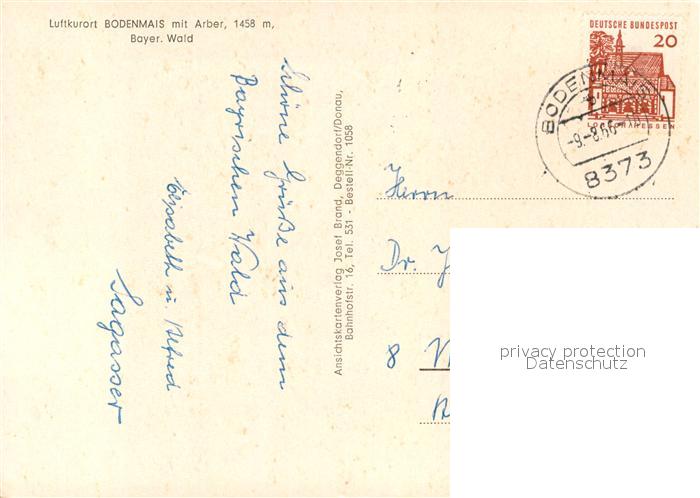 Luftkurort BODENMAIS mit Arber, 1458 m,
Bayer. Wald
Schöne Grüße aus dem
Bayrischen Wald
Elisabeth u. Alfred
Sagasser
Ansichtskartenverlag Josef Brand, Deggendorf/Donau,
Bahnhofstr. 16, Tel. 531 - Bestell-Nr. 1058
DEUTSCHE BUNDESPOST
20
LORSCH/HESSEN
BODENMAIS
-9.-8.66
8373
Herrn
Dr.
8
privacy protection
Datenschutz